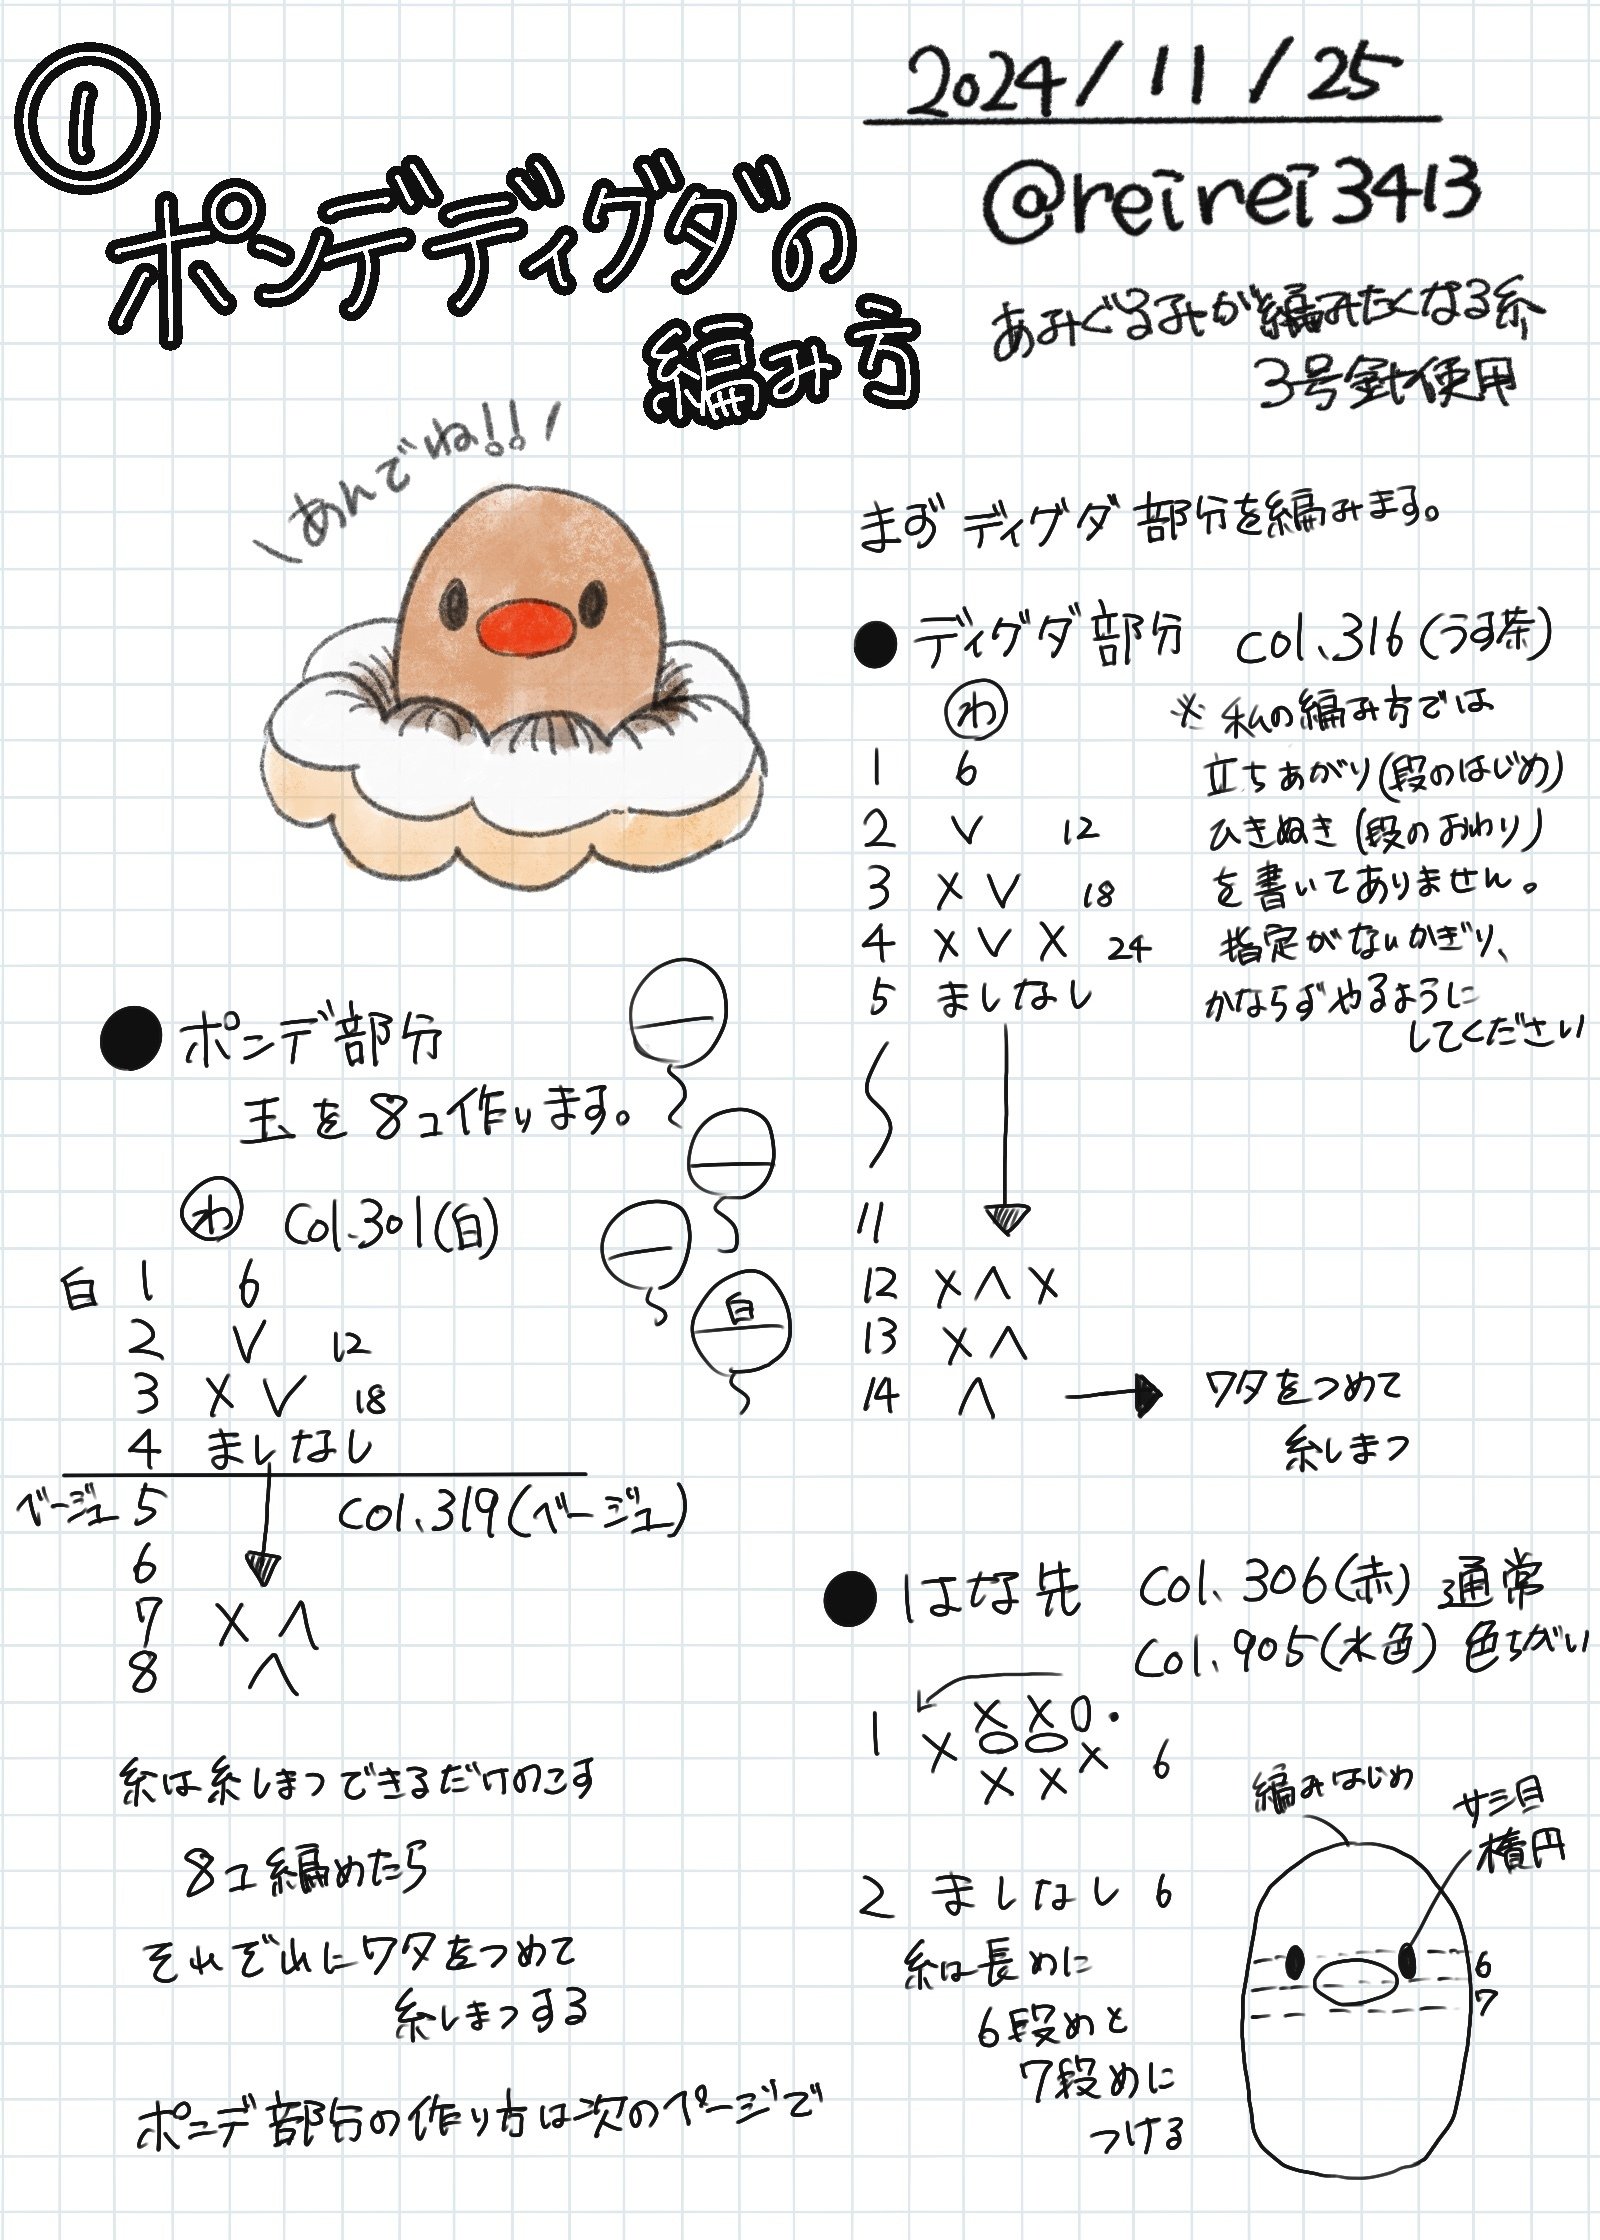 ①
ポンデディグダの
編み方
2024/11/25
@reirei3413
あみぐるみが編みたくなる糸
3号針使用
\あんでね!!/
まず ディグダ 部分を編みます。
● ディグダ部分 col.316(うす茶)
わ
1 6
2 V 12
3 X V 18
4 X V X 24
5 ましなし
11
12 X Λ X
13 X Λ
14 Λ → ワタをつめて
糸しまつ
※ 私の編み方では
立ちあがり(段のはじめ)
ひきぬき(段のおわり)
を書いてありません。
指定がないかぎり、
かならずやるように
してください
● ポンデ部分
玉を8コ作ります。
わ Col.301(白)
白 1 6
2 V 12
3 X V 18
4 ましなし
ベージュ 5 Col.319(ベージュ)
6
7 X Λ
8 Λ
白
糸は糸しまつできるだけのこす
8コ編めたら
それぞれにワタをつめて
糸しまつする
ポンデ部分の作り方は次のページで
● はな先 Col.306(赤) 通常
Col.905(水色) 色ちがい
1 X X X 0・
X 0 0 X 6
X X
2 ましなし 6
糸は長めに
6段めと
7段めに
つける
編みはじめ
サシ目
楕円
6
7